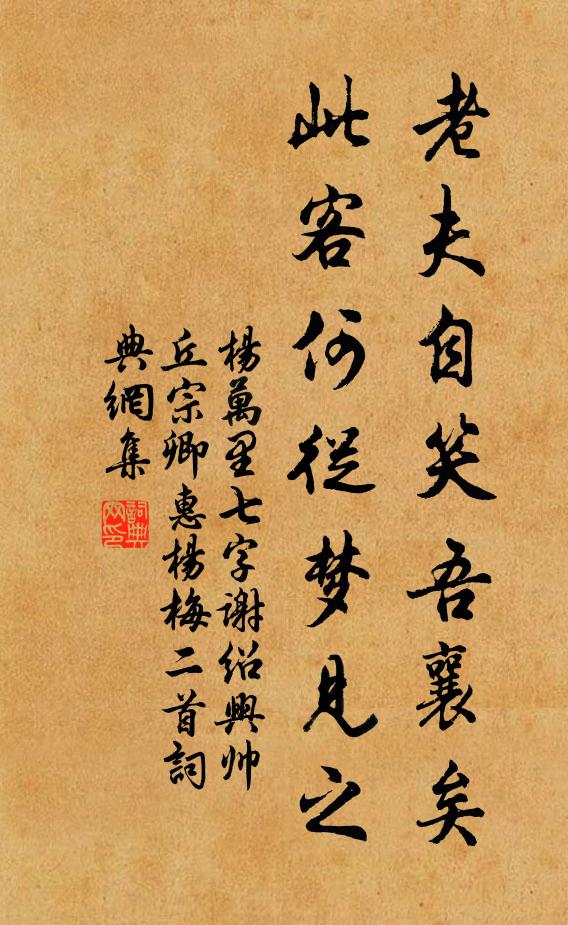 老夫自笑吾襄矣
此客何從梦見之
楊萬里七字謝紹興帅
丘宗卿惠楊梅二首詞
典網集
詞典
网印